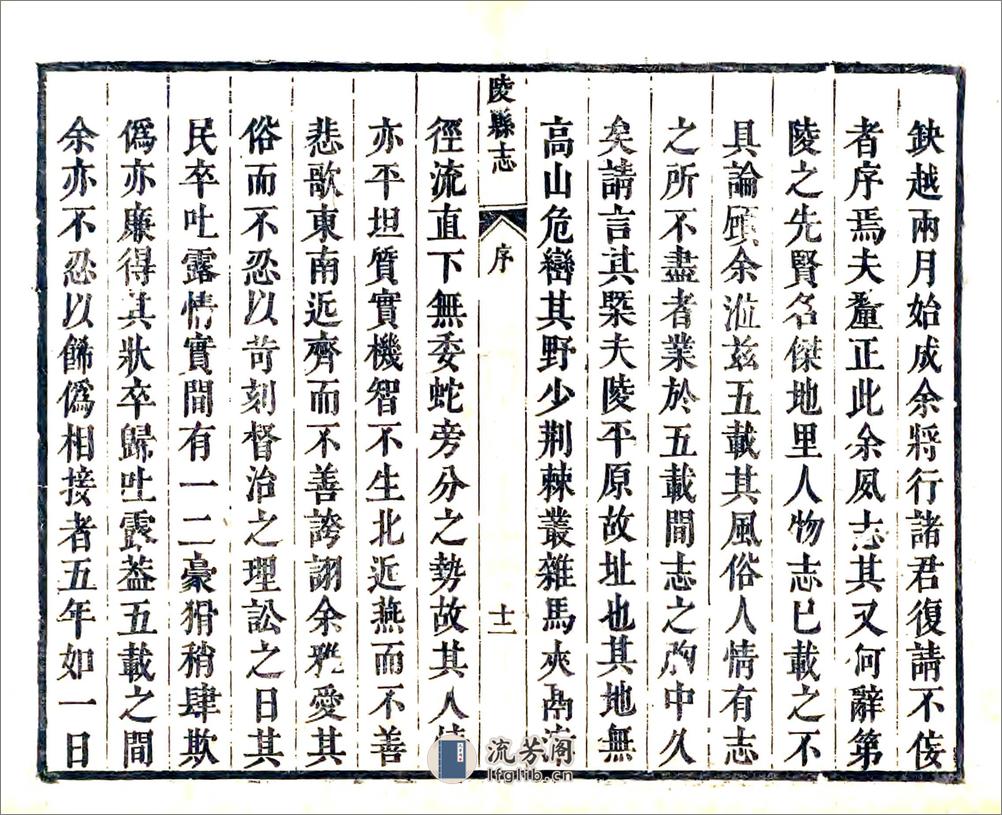 缺越兩月始成余將行諸君復請不佞
者序焉夫釐正此余夙志其又何辭第
陵之先賢名傑地里人物志已載之不
具論顧余涖茲五載其風俗人情有志
之所不盡者業於五載間志之胸中久
矣請言其槩夫陵平原故址也其地無
高山危巒其野少荆棘叢雜馬夾鬲
陵縣志
序
十二
徑流直下無委蛇旁分之勢故其人
亦平坦質實機智不生北近燕而不善
悲歌東南近齊而不善誇詡余雅愛其
俗而不忍以苛刻督治之理訟之日其
民卒吐露情實間有一二豪猾稍肆欺
僞亦廉得其狀卒歸吐露葢五載之間
余亦不忍以餙僞相接者五年如一日
流芳阁
lfglib.cn